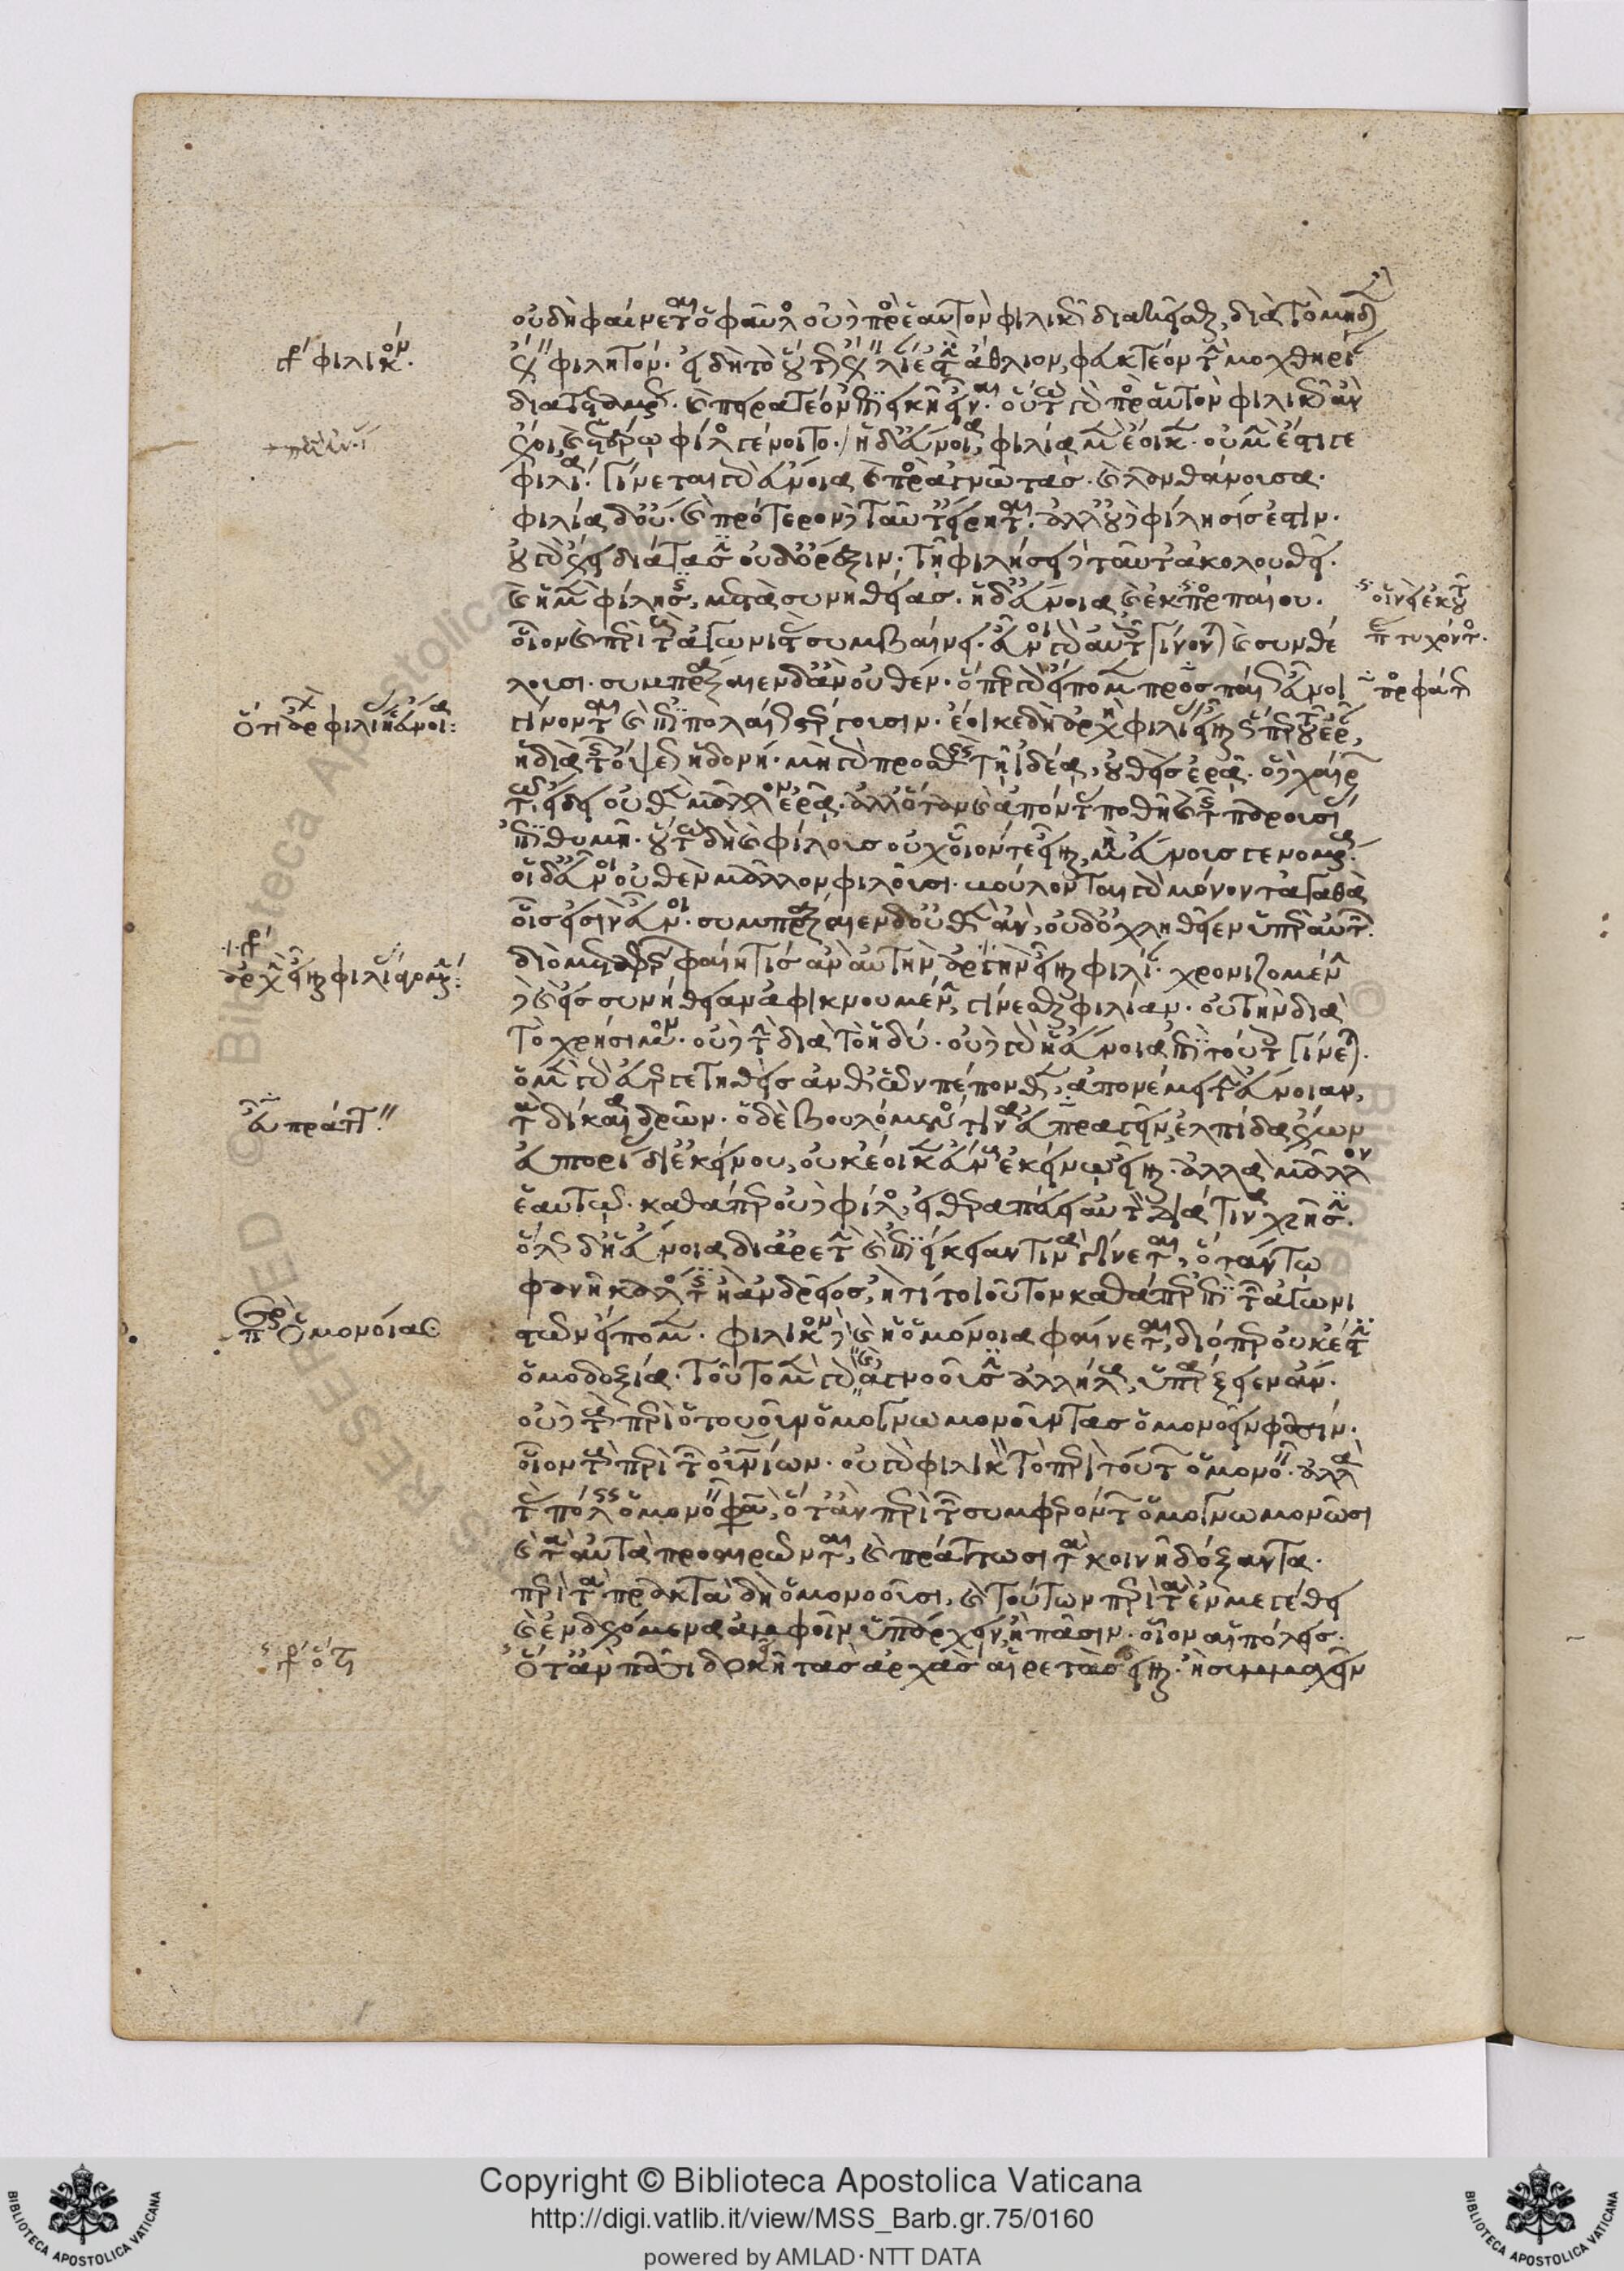 οὐ δὴ φαίνεται ὁ φαῦλος οὐδὲ πρὸς ἑαυτὸν φιλικῶς διακεῖσθαι, διὰ τὸ μηδὲν
ἔχειν φιλητόν. εἰ δὴ τὸ οὕτως ἔχειν λίαν ἐστὶν ἄθλιον, φευκτέον τὴν μοχθηρίαν
διατεταμένως. καὶ πειρατέον ἐπιεικῆ εἶναι. οὕτω γὰρ πρὸς αὑτὸν φιλικῶς ἂν
ἔχοι, καὶ ἑτέρῳ φίλος γένοιτο. ἡ δ' εὔνοια, φιλίᾳ μὲν ἔοικεν. οὐ μὴν ἔστι γε
φιλία. γίνεται γὰρ εὔνοια καὶ πρὸς ἀγνῶτας. καὶ λανθάνουσα.
φιλία δ' οὔ. καὶ πρότερον δὲ ταῦτ' εἴρηται. ἀλλ' οὐδὲ φίλησίς ἐστιν.
οὐ γὰρ ἔχει διάτασιν οὐδ' ὄρεξιν. τῇ φιλήσει δὲ ταῦτ' ἀκολουθεῖ.
καὶ ἡ μὲν φίλησις, μετὰ συνηθείας. ἡ δ' εὔνοια καὶ ἐκ προσπαίου.
οἷον καὶ περὶ τοὺς ἀγωνιστὰς συμβαίνει. εὖνοι γὰρ αὐτοῖς γίνονται καὶ συνθέ
λουσι. συμπράξαιεν δ' ἂν οὐθέν. ὅπερ γὰρ εἴπομεν προσπαίως εὖνοι
γίνονται καὶ ἐπιπολαίως στέργουσιν. ἔοικε δὴ ἀρχὴ φιλίας εἶναι ὥσπερ τοῦ ἐρᾶν,
ἡ διὰ τῆς ὄψεως ἡδονή. μὴ γὰρ προησθεὶς τῇ ἰδέᾳ, οὐθεὶς ἐρᾷ. ὁ δὲ χαίρων
τῷ εἴδει οὐθὲν μᾶλλον ἐρᾷ. ἀλλ' ὅταν καὶ ἀπόντα ποθῇ καὶ τῆς παρουσίας
ἐπιθυμῇ. οὕτω δὴ καὶ φίλους οὐχ οἷόν τε εἶναι, μὴ εὔνους γενομένους.
οἱ δ' εὖνοι οὐθὲν μᾶλλον φιλοῦσι. βούλονται γὰρ μόνον τἀγαθὰ
οἷς εἰσὶν εὖνοι. συμπράξαιεν δ' οὐθὲν ἂν, οὐδ' ὀχληθεῖεν ὑπὲρ αὐτῶν.
διὸ μεταφέρων φαίη τις ἂν αὐτὴν ἀργὴν εἶναι φιλίαν. χρονιζομένην
δὲ καὶ εἰς συνήθειαν ἀφικνουμένην, γίνεσθαι φιλίαν. οὐ τὴν διὰ
τὸ χρήσιμον. οὐδὲ τὴν διὰ τὸ ἡδύ. οὐδὲ γὰρ ἡ εὔνοια ἐπὶ τούτοις γίνεται.
ὁ μὲν γὰρ εὐεργετηθεὶς ἀνθ' ὧν πέπονθεν, ἀπονέμει τὴν εὔνοιαν,
τὰ δίκαια δρῶν. ὁ δὲ βουλόμενός τινα εὐπραγεῖν, ἐλπίδας ἔχων
εὐπορίας δι' ἐκείνου, οὐκ ἔοικεν εὔνους ἐκείνῳ εἶναι. ἀλλὰ μᾶλλον
ἑαυτῷ. καθάπερ οὐδὲ φίλος, εἰ θεραπεύει αὐτὸν διά τινα χρῆσιν.
ὅλως δ' ἡ εὔνοια δι' ἀρετὴν καὶ ἐπιείκειάν τινα γίνεται, ὅταν τῳ
φανῇ καλός τις ἢ ἀνδρεῖος, ἤ τι τοιοῦτον καθάπερ ἐπὶ τῶν ἀγωνι
στῶν εἴπομεν. φιλικὸν δὲ καὶ ἡ ὁμόνοια φαίνεται, διόπερ οὐκ ἔστιν
ὁμοδοξία. τοῦτο μὲν γὰρ καὶ ἀγνοοῦσιν ἀλλήλους, ὑπάρξειεν ἄν.
οὐδὲ τοὺς περὶ ὁτουοῦν ὁμογνωμονοῦντας ὁμονοεῖν φασίν.
οἷον τοὺς περὶ τῶν οὐρανίων. οὐ γὰρ φιλικὸν τὸ περὶ τούτων ὁμονοεῖν. ἀλλὰ
τὰς πόλεις ὁμονοεῖν φασὶν, ὅταν περὶ τῶν συμφερόντων ὁμογνωμονῶσι
καὶ τὰ αὐτὰ προαιρῶνται, καὶ πράττωσι τὰ κοινῇ δόξαντα.
περὶ τὰ πρακτὰ δὴ ὁμονοοῦσι, καὶ τούτων περὶ τὰ ἐν μεγέθει
καὶ ἐνδεχόμενα ἀμφοῖν ὑπάρχειν, ἢ πᾶσιν. οἷον αἱ πόλεις.
ὅταν πᾶσι δοκῇ τὰς ἀρχὰς αἱρετὰς εἶναι. ἢ συμμαχεῖν
γρ φιλικόν.
ὅτι ἀρχὴ φιλίας ἡ εὔνοια:
ἀρχὴν εἶναι φιλίας
εὐπραγεῖν
περὶ ὁμονοίας
Copyright © Biblioteca Apostolica Vaticana
http://digi.vatlib.it/view/MSS_Barb.gr.75/0160
powered by AMLAD·NTT DATA
BIBLIOTECA APOSTOLICA VATICANA
BIBLIOTECA APOSTOLICA VATICANA